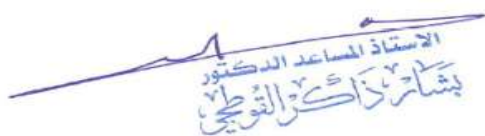 الاستاذ المساعد الدكتور
بشار ذاكر القوطجي